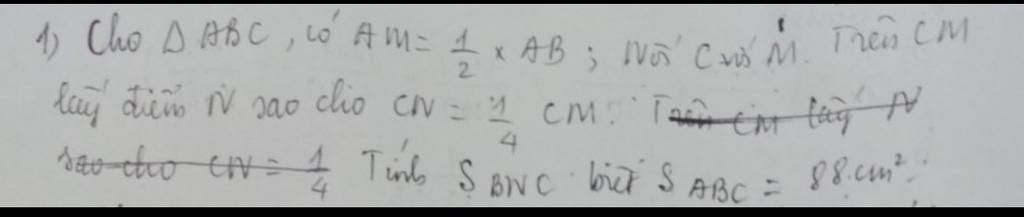 1) Cho Δ ABC, có AM = 1/2 × AB ; Nối C với M. Trên CM
lấy điểm N sao cho CN = 1/4 CM. Trên CM lấy N
sao cho CN = 1/4 Tính S BNC biết S ABC = 88 cm².